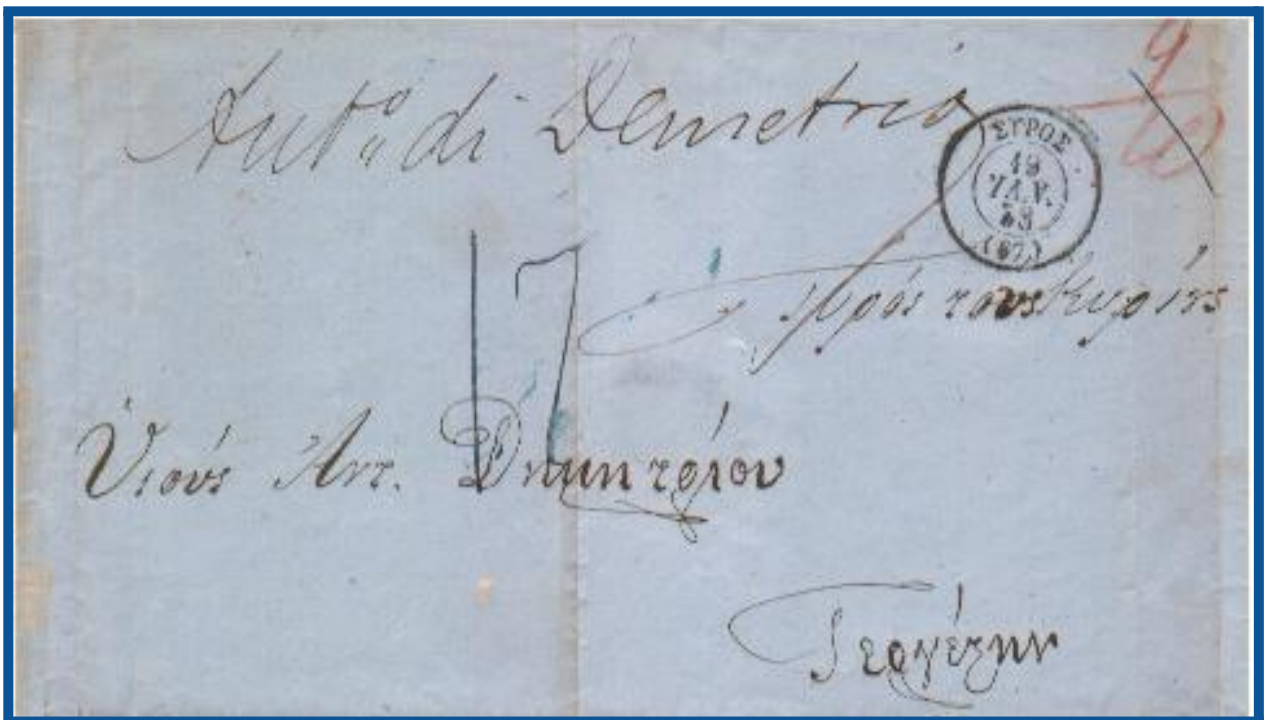 9
10
Antº di Demetrio
ΣΥΡΟΣ
ΙΑΝ.
(67)
17
πρός τους Κυρίους
Υἱούς Αντ. Δημητρίου
Τεργέστην